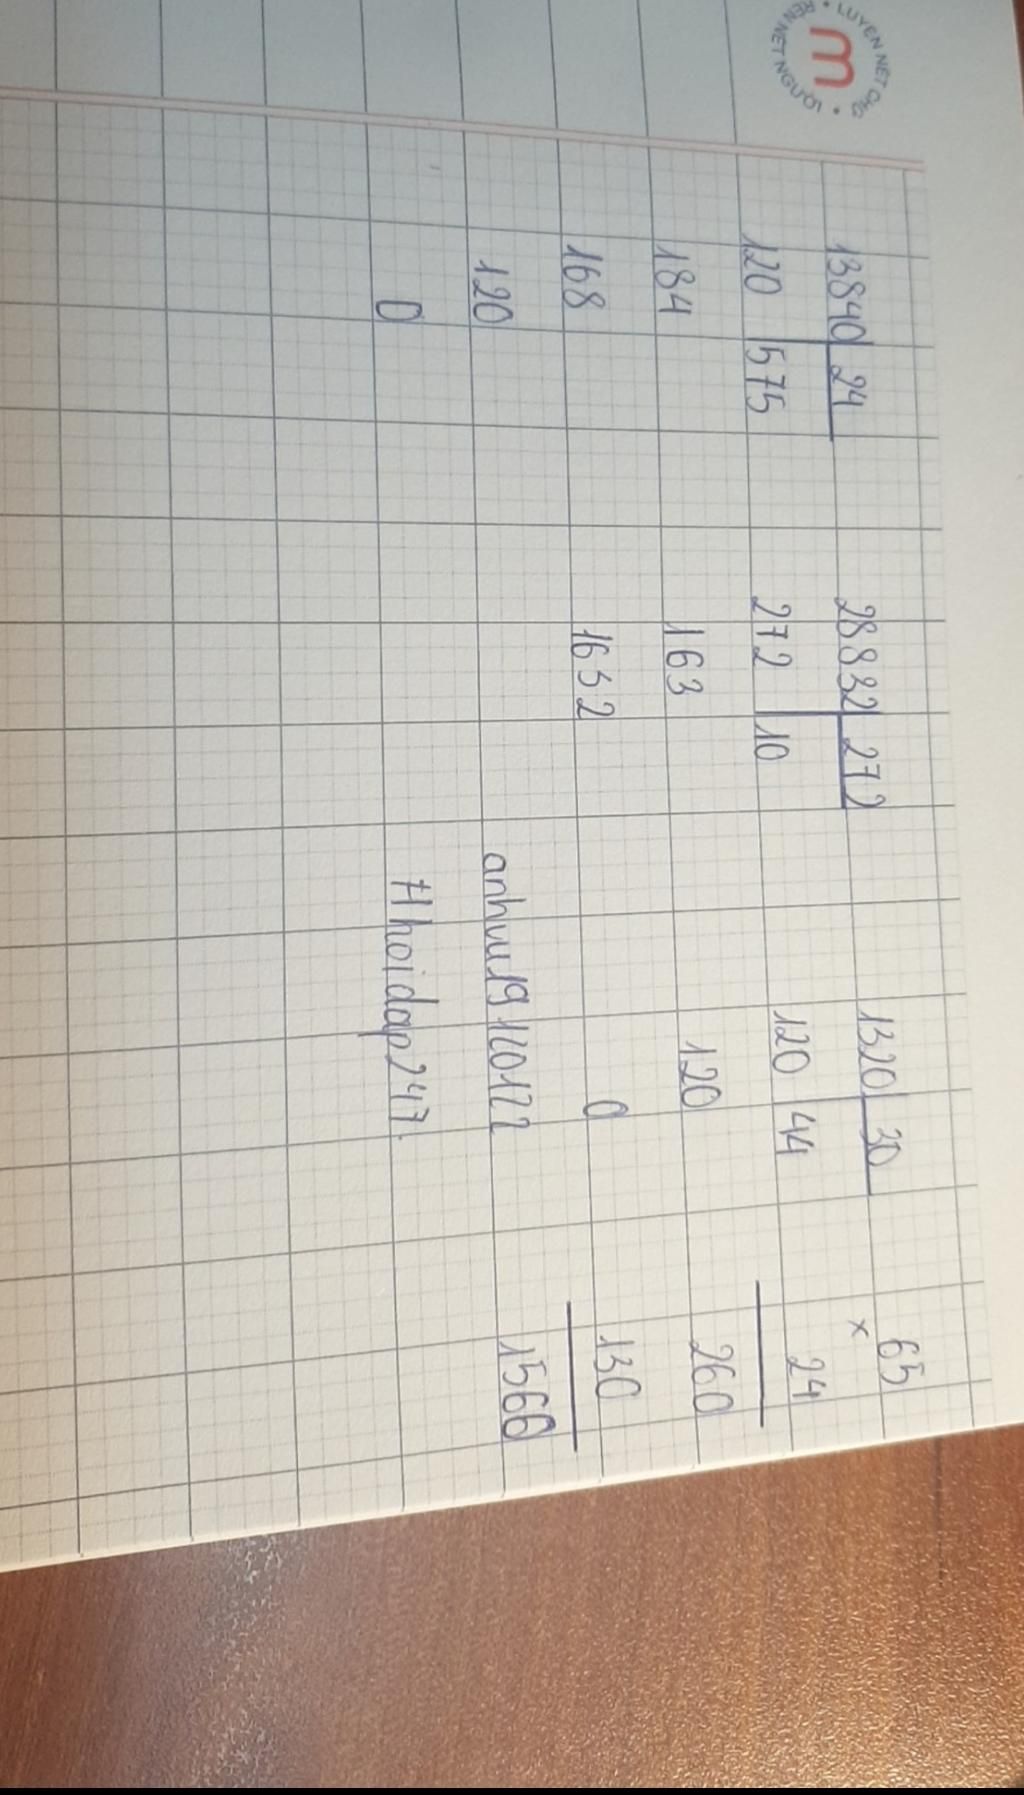 RÈN NẾT NGƯỜI • LUYỆN NÉT CHỮ •
m
13840 24 28832 272 1320 30 65
x
120 575 272 10 120 44 24
184 163 120 260
168 1632 0 130
120 anhvu19120122 1560
0 #hoidap247.